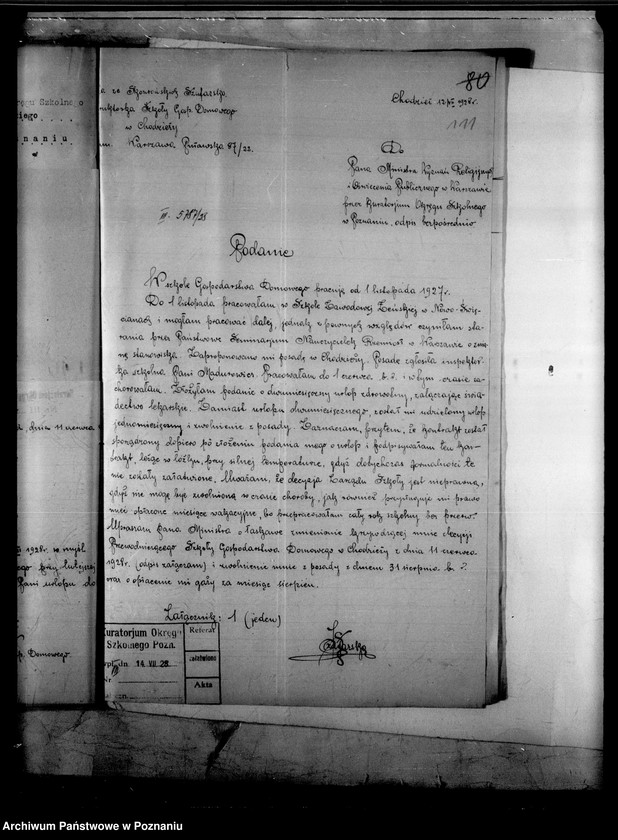 Szkolnego
znaniu.
dnia 11 czerwca
1928 r. w myśl
Pani urlopu do
Domowego.
80
111
ze Szafarska
Szkoły Gosp. Domowego
w Chodzieży
Warszawa Puławska 87/22.
Chodzież 12 VII 1928 r.
Do
Pana Ministra Wyznań Religijnych
i Oświecenia Publicznego w Warszawie
przez Kuratorjum Okręgu Szkolnego
w Poznaniu, odpis bezpośrednio
III. 5787/28
Podanie
W szkole Gospodarstwa Domowego pracuję od 1 listopada 1927 r.
Do 1 listopada pracowałam w Szkole Zawodowej Żeńskiej w Nowo-Świę-
cianach i mogłam pracować dalej, jednak z pewnych względów czyniłam sta-
rania przez Państwowe Seminarjum Nauczycielek Rzemiosł w Warszawie o zmia-
nę stanowiska. Zaproponowano mi posadę w Chodzieży. Posadę zgłosiła inspektor-
ka szkolna Pani Madurowicz. Pracowałam do 1 czerwca b.r. i w tym czasie za-
chorowałam. Złożyłam podanie o dwumiesięczny urlop zdrowotny, załączając świa-
dectwo lekarskie. Zamiast urlopu dwumiesięcznego, został mi udzielony urlop
jednomiesięczny i zwolnienie z posady. Zaznaczam, przytem, że kontrakt został
sporządzony dopiero po złożeniu podania mego o urlop i podpisywałam ten kon-
trakt, leżąc w łóżku, przy silnej temperaturze, gdyż dotychczas formalności te
nie zostały załatwione. Uważam, że decyzja Zarządu Szkoły jest nieprawna,
gdyż nie mogę być zwolnioną w czasie choroby, jak również przysługuje mi prawo
mieć opłacone miesiące wakacyjne, bo przepracowałam cały rok szkolny bez przerw.
Upraszam Pana Ministra o łaskawe zmienienie krzywdzącej mnie decyzji
Przewodniczącego Szkoły Gospodarstwa Domowego w Chodzieży z dnia 11 czerwca
1928 r. (odpis załączam) i zwolnienie mnie z posady z dniem 31 sierpnia b.r.
oraz o opłacenie mi gaży za miesiąc sierpień.
Załącznik: 1 (jeden)
Szafarska
Kuratorjum Okręgu
Szkolnego Pozn.
wpł. dn. 14 VII 28
Referat
Akta
Archiwum Państwowe w Poznaniu